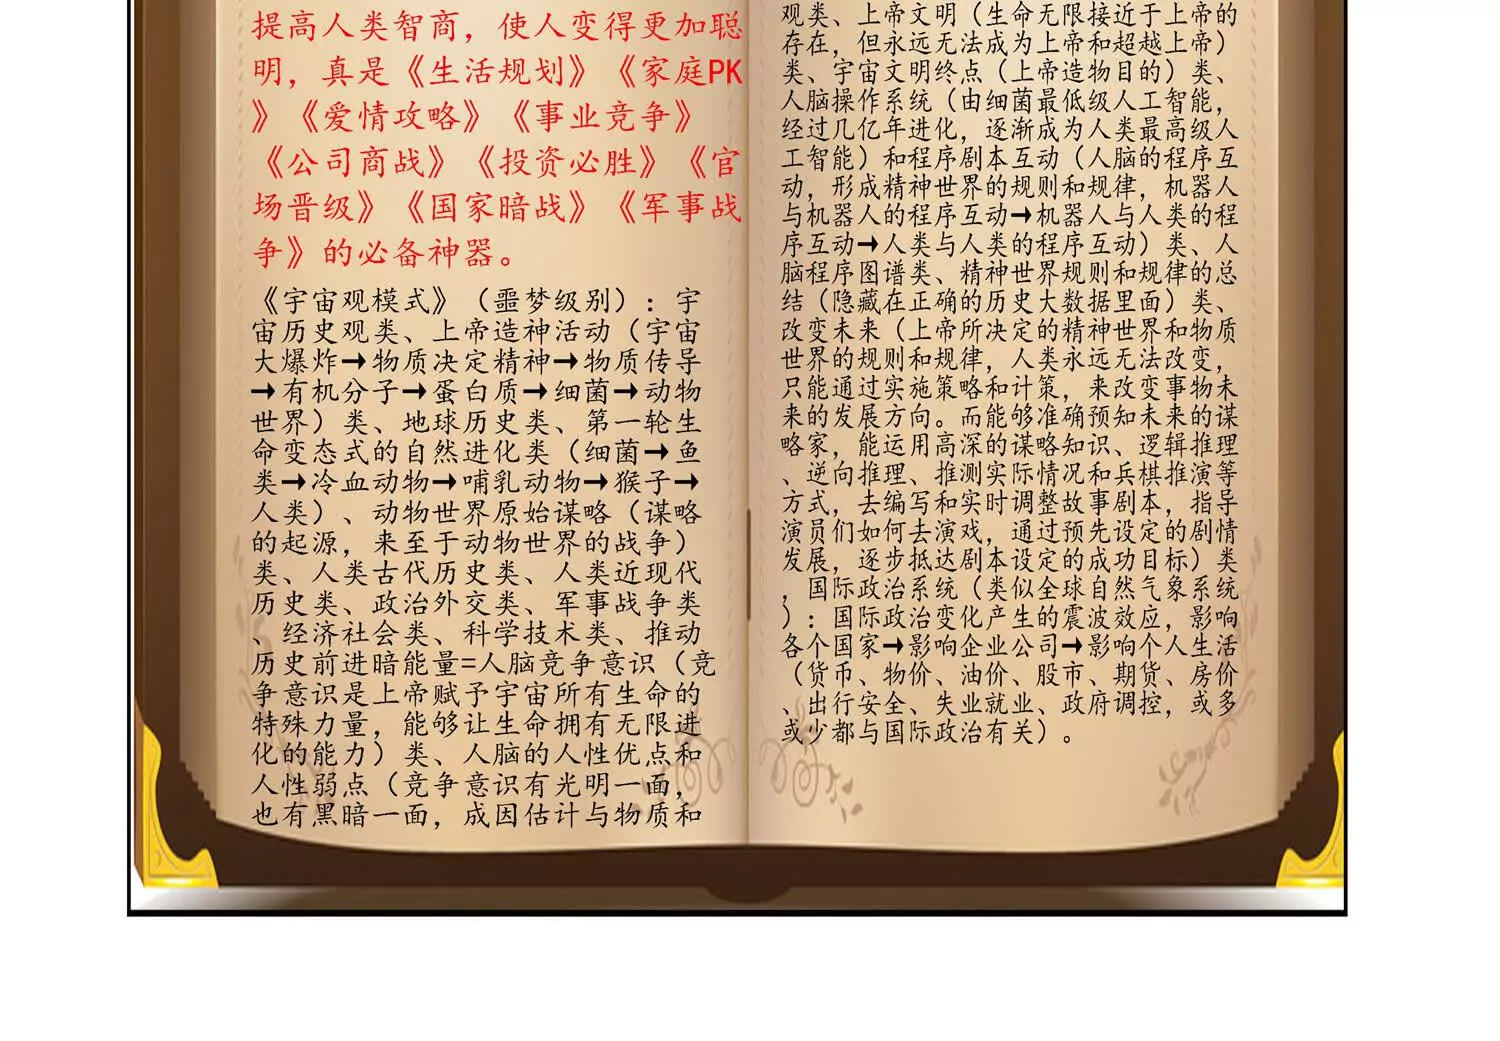 提高人类智商，使人变得更加聪
明，真是《生活规划》《家庭PK
》《爱情攻略》《事业竞争》
《公司商战》《投资必胜》《官
场晋级》《国家暗战》《军事战
争》的必备神器。
《宇宙观模式》（噩梦级别）：宇
宙历史观类、上帝造神活动（宇宙
大爆炸→物质决定精神→物质传导
→有机分子→蛋白质→细菌→动物
世界）类、地球历史类、第一轮生
命变态式的自然进化类（细菌→鱼
类→冷血动物→哺乳动物→猴子→
人类）、动物世界原始谋略（谋略
的起源，来至于动物世界的战争）
类、人类古代历史类、人类近现代
历史类、政治外交类、军事战争类
、经济社会类、科学技术类、推动
历史前进暗能量=人脑竞争意识（竞
争意识是上帝赋予宇宙所有生命的
特殊力量，能够让生命拥有无限进
化的能力）类、人脑的人性优点和
人性弱点（竞争意识有光明一面，
也有黑暗一面，成因估计与物质和
观类、上帝文明（生命无限接近于上帝的
存在，但永远无法成为上帝和超越上帝）
类、宇宙文明终点（上帝造物目的）类、
人脑操作系统（由细菌最低级人工智能，
经过几亿年进化，逐渐成为人类最高级人
工智能）和程序剧本互动（人脑的程序互
动，形成精神世界的规则和规律，机器人
与机器人的程序互动→机器人与人类的程
序互动→人类与人类的程序互动）类、人
脑程序图谱类、精神世界规则和规律的总
结（隐藏在正确的历史大数据里面）类、
改变未来（上帝所决定的精神世界和物质
世界的规则和规律，人类永远无法改变，
只能通过实施策略和计策，来改变事物未
来的发展方向。而能够准确预知未来的谋
略家，能运用高深的谋略知识、逻辑推理
、逆向推理、推测实际情况和兵棋推演等
方式，去编写和实时调整故事剧本，指导
演员们如何去演戏，通过预先设定的剧情
发展，逐步抵达剧本设定的成功目标）类
，国际政治系统（类似全球自然气象系统
）：国际政治变化产生的震波效应，影响
各个国家→影响企业公司→影响个人生活
（货币、物价、油价、股市、期货、房价
、出行安全、失业就业、政府调控，或多
或少都与国际政治有关）。